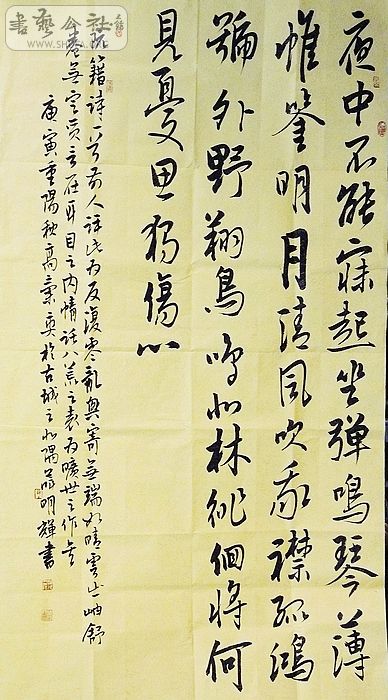 書藝公社
夜中不能寐起坐彈鳴琴薄
帷鑒明月清風吹我襟孤鴻
號外野翔鳥鳴北林徘徊將何
見憂思独傷心
阮籍詩一首前人評此為反復零亂興寄無端如晴雲出岫舒
卷無定質言在耳目之內情託八荒之表為曠世之作
庚寅重陽秋高氣爽於古城之北隅明輝書